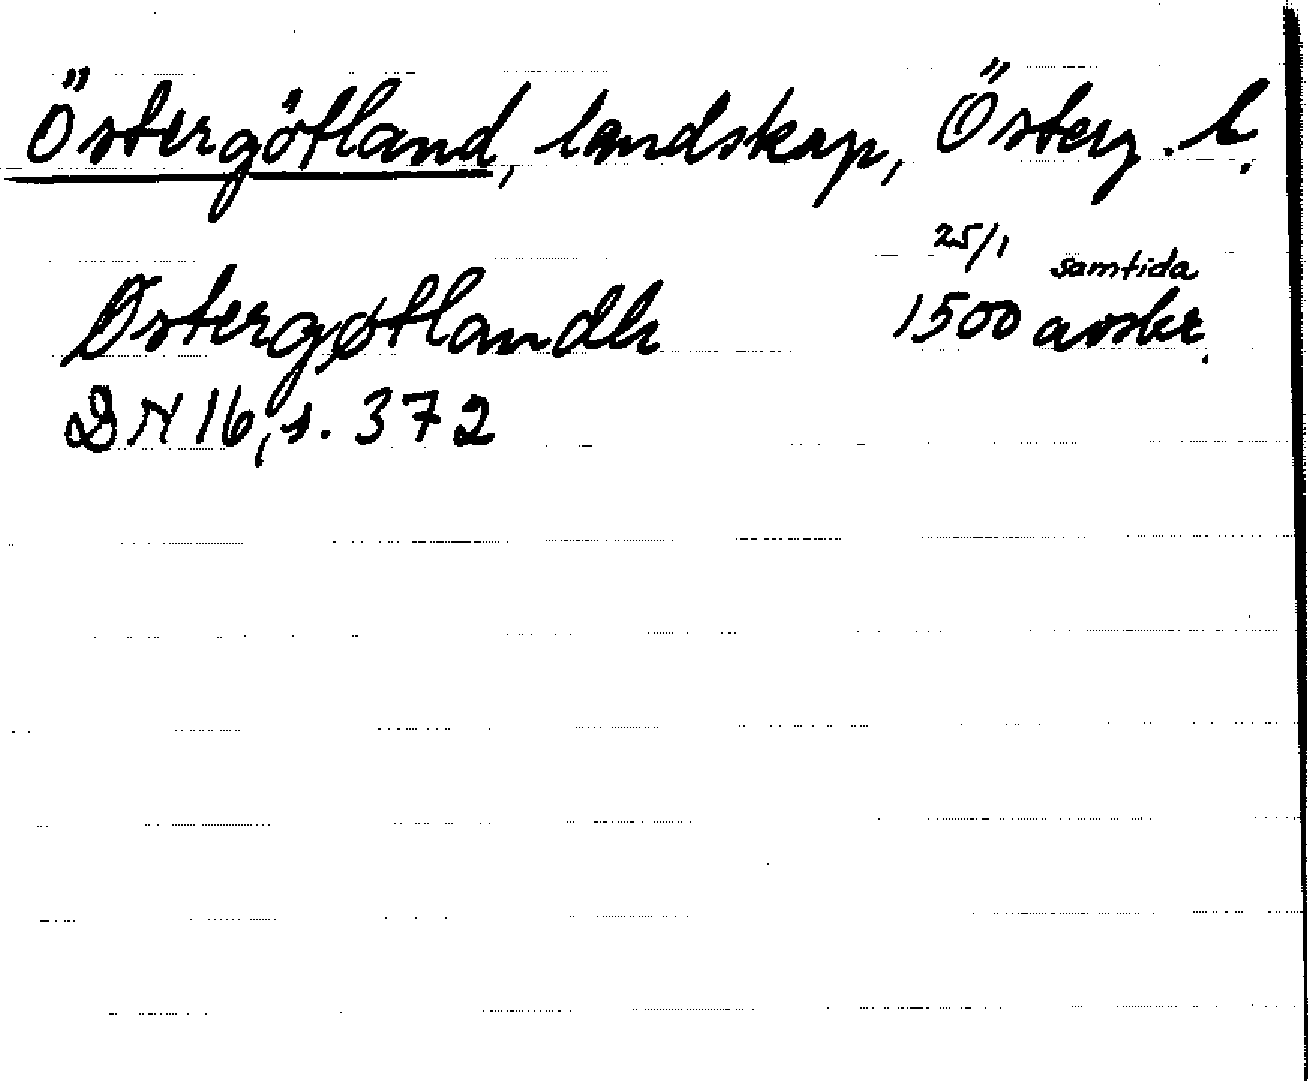 Östergötland, landskap, Österg. l.
25/1 samtida
Østergøtlandh 1500 avskr.
DN 16, s. 372